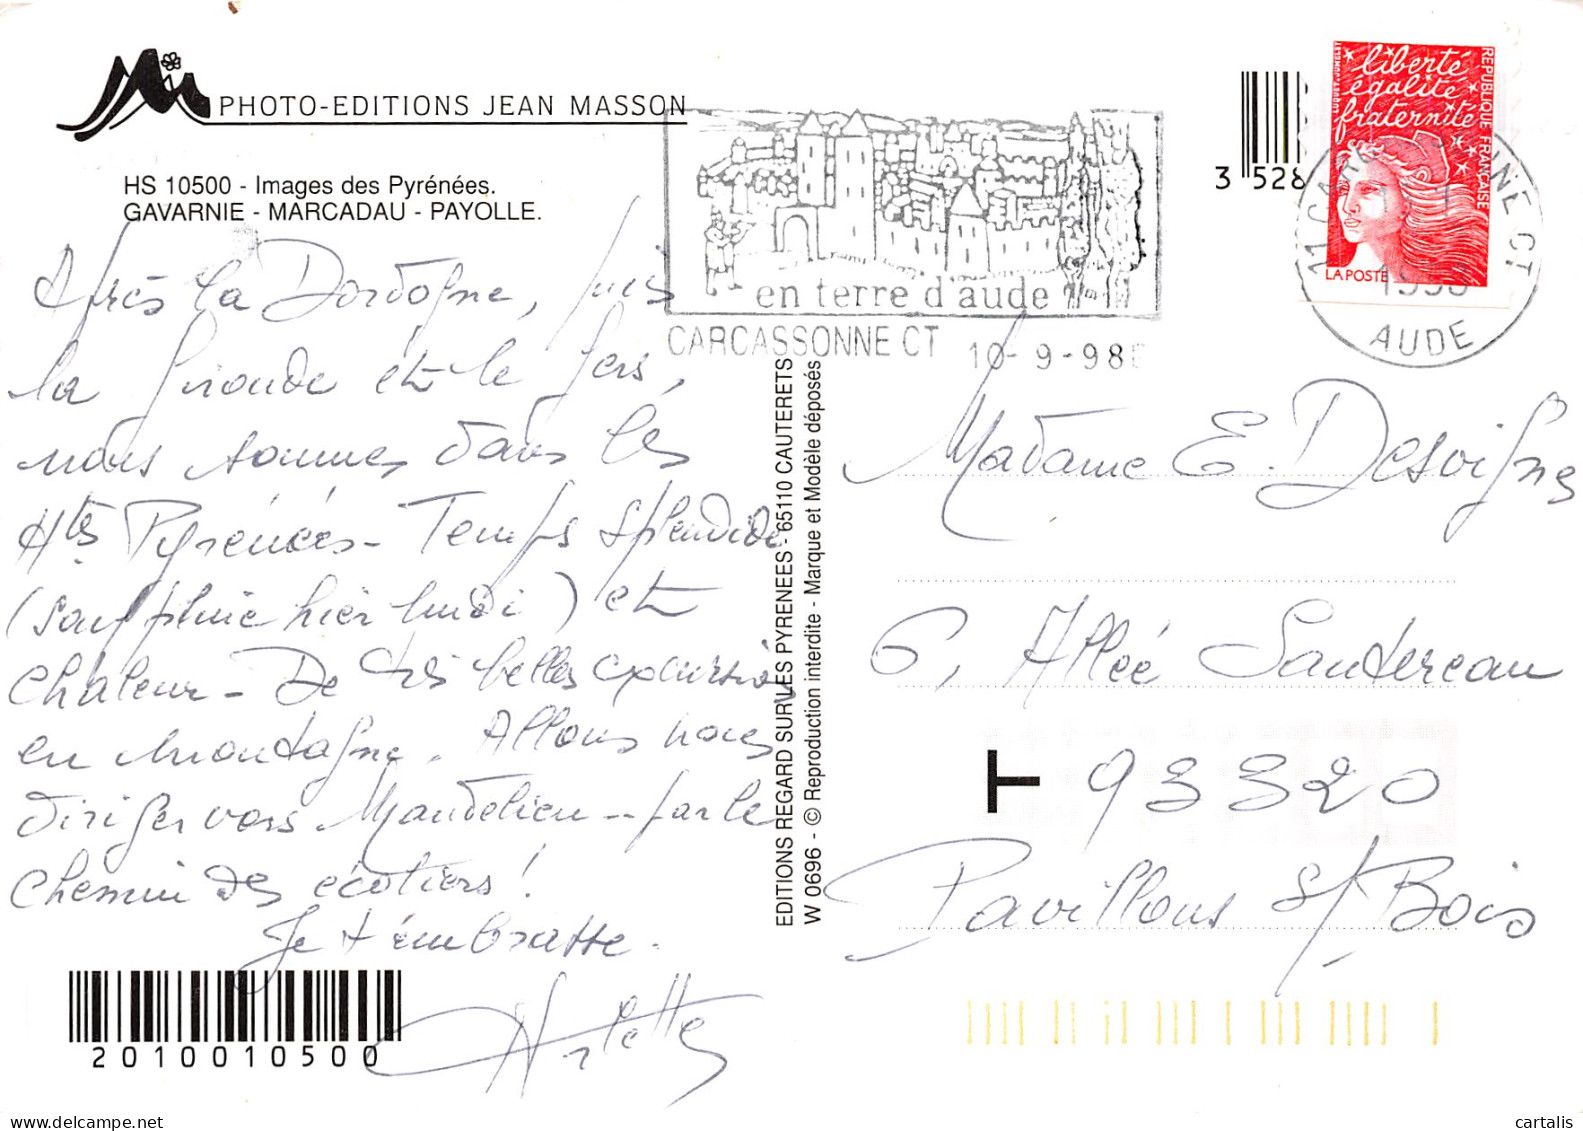 PHOTO-EDITIONS JEAN MASSON
HS 10500 - Images des Pyrénées.
GAVARNIE - MARCADAU - PAYOLLE.
Après la Dordogne, puis
la Gironde et le Gers,
nous sommes dans les
Htes Pyrénées - Temps splendide
(sauf pluie hier lundi) et
chaleur - De très belles excursions
en montagne. Allons nous
diriger vers Mandelieu -- par le
chemin des écoliers !
Je t'embrasse.
Arlette
2010010500
EDITIONS REGARD SUR LES PYRENEES - 65110 CAUTERETS
W 0696 - © Reproduction interdite - Marque et Modèle déposés
en terre d'aude
CARCASSONNE CT 10-9-98
3 528
liberté
égalité
fraternité
REPUBLIQUE FRANÇAISE
LA POSTE
11 CARCASSONNE CT
1998
AUDE
Madame E. Desvigne
6, Allée Sautereau
T 93320
Pavillons s/ Bois
cartalis
www.delcampe.net